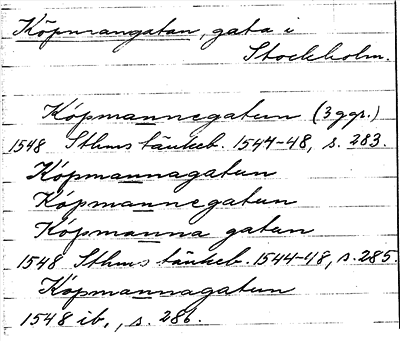 Köpmangatan, gata i
Stockholm.
Köpmannegatun (3 ggr.)
1548 Sthms tänkeb. 1544-48, s. 283.
Köpmannagatun
Köpmannegatun
Köpmanna gatun
1548 Sthms tänkeb. 1544-48, s. 285.
Köpmannagatun
1548 ib., s. 286.